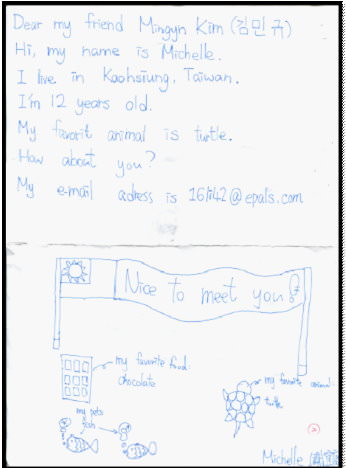 Dear my friend Mingyn Kim (김민규)
Hi, my name is Michelle.
I live in Kaohsiung, Taiwan.
I'm 12 years old.
My favorit animal is turtle.
How about you?
My e-mail adress is @epals.com
Nice to meet you!
my favorite food:
chocolate
my favorite animal:
turtle
my pets
fish
2
Michelle